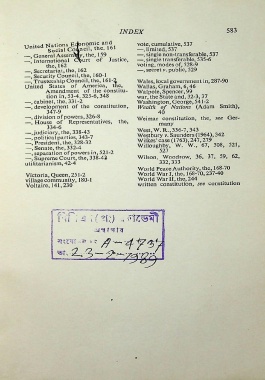 INDEX 583
United Nations Economic and
Social Council, the, 161
—, General Assembly, the, 159
—, International Court of Justice,
the, 162
—, Secretariat, the, 162
—, Security Council, the, 160-1
—, Trusteeship Council, the, 161-2
United States of America, the,
Amendment of the constitu-
tion in, 53-4, 525-6, 548
—, cabinet, the, 331-2
—, development of the constitution,
—, division of powers, 326-8
—, House of Representatives, the,
334-6
—, judiciary, the, 338-43
—, political parties, 343-7
—, President, the, 328-32
—, Senate, the, 332-4
—, separation of powers in, 521-2
—, Supreme Court, the, 338-42
utilitarianism, 42-4
Victoria, Queen, 251-2
village community, 180-1
Voltaire, 141, 230
vote, cumulative, 537
—, limited, 537
—, single non-transferable, 537
—, single transferable, 535-6
voting, modes of, 528-9
—, secret v. public, 529
Wales, local government in, 287-90
Wallas, Graham, 6, 46
Walpole, Spencer, 99
war, the State and, 32-3, 37
Washington, George, 341-2
Wealth of Nations (Adam Smith),
40
Weimar constitution, the, see Ger-
many
West, W. R., 336-7, 343
Westbury v Saunders (1964), 342
Wilkes' case (1763), 247, 279
Willoughby, W. W., 67, 308, 321,
527
Wilson, Woodrow, 36, 37, 59, 62,
332, 333
World Peace Authority, the, 168-70
World War I, the, 168-70, 237-40
World War II, the, 244
written constitution, see constitution
A-4737
23-2-1983